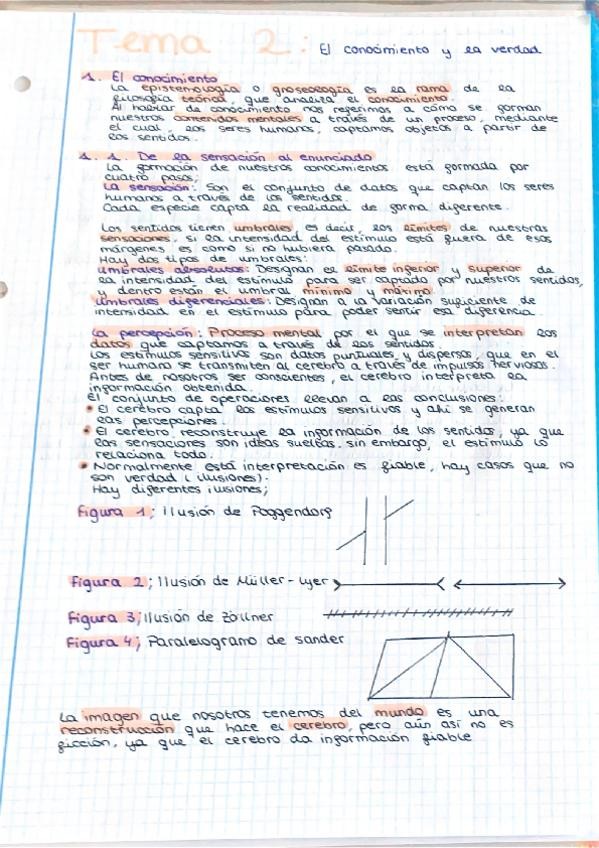 Tema 2: El conocimiento y la verdad
1. El conocimiento
La epistemología o gnoseología es la rama de la
filosofía teórica, que analiza el conocimiento.
Al hablar de conocimiento nos referimos a cómo se forman
nuestros contenidos mentales a través de un proceso, mediante
el cual, los seres humanos, captamos objetos a partir de
los sentidos.
1. 1. De la sensación al enunciado
La formación de nuestros conocimientos está formada por
cuatro pasos;
La sensación: Son el conjunto de datos que captan los seres
humanos a través de los sentidos.
Cada especie capta la realidad de forma diferente.
Los sentidos tienen umbrales, es decir, los límites de nuestras
sensaciones, si la intensidad del estímulo está fuera de esos
márgenes, es como si no hubiera pasado.
Hay dos tipos de umbrales:
umbrales absolutos: Designan el límite inferior y superior de
la intensidad del estímulo para ser captado por nuestros sentidos,
y dentro están el umbral mínimo y máximo.
Umbrales diferenciales: Designan a la variación suficiente de
intensidad en el estímulo para poder sentir esa diferencia.
La percepción: Proceso mental por el que se interpretan los
datos que captamos a través de los sentidos.
Los estímulos sensitivos son datos puntuales y dispersos, que en el
ser humano se transmiten al cerebro a través de impulsos nerviosos.
Antes de nosotros ser conscientes, el cerebro interpreta la
información obtenida.
El conjunto de operaciones llevan a las conclusiones:
• El cerebro capta los estímulos sensitivos y ahí se generan
las percepciones.
• El cerebro reconstruye la información de los sentidos, ya que
las sensaciones son ideas sueltas, sin embargo, el estímulo lo
relaciona todo.
• Normalmente está interpretación es fiable, hay casos que no
son verdad (ilusiones).
Hay diferentes ilusiones;
Figura 1; ilusión de Poggendorf
Figura 2; Ilusión de Müller-lyer
Figura 3; ilusión de Zöllner
Figura 4; Paralelogramo de sander
La imagen que nosotros tenemos del mundo es una
reconstrucción que hace el cerebro, pero aún así no es
ficción, ya que el cerebro da información fiable